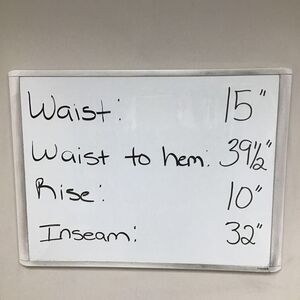 Waist: 15"
Waist to hem: 39½"
Rise: 10"
Inseam: 32"